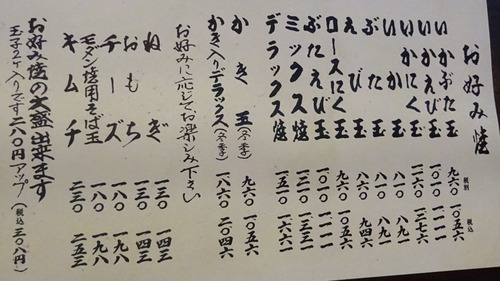 お好み焼 税別 税込
いかぶた玉 九六〇 一〇五六
いかえび玉 一〇一〇 一一一一
いかにく玉 一一六〇 一二七六
いか玉 八一〇 八九一
ぶた玉 八一〇 八九一
えび玉 八六〇 九四六
ロースにく玉 九六〇 一〇五六
ぶたえび玉 一〇一〇 一一一一
ミックス焼 一二一〇 一三三一
デラックス焼 一五一〇 一六六一
かき玉(冬季) 九六〇 一〇五六
かき入りデラックス(冬季) 一八六〇 二〇四六
お好みに応じてお楽しみ下さい
ねぎ 一三〇 一四三
おもち 一三〇 一四三
チーズ 一八〇 一九八
モダン焼用そば玉 一八〇 一九八
キムチ 二三〇 二五三
お好み焼の大盛出来ます
玉子2ヶ入りです二八〇円アップ(税込三〇八円)